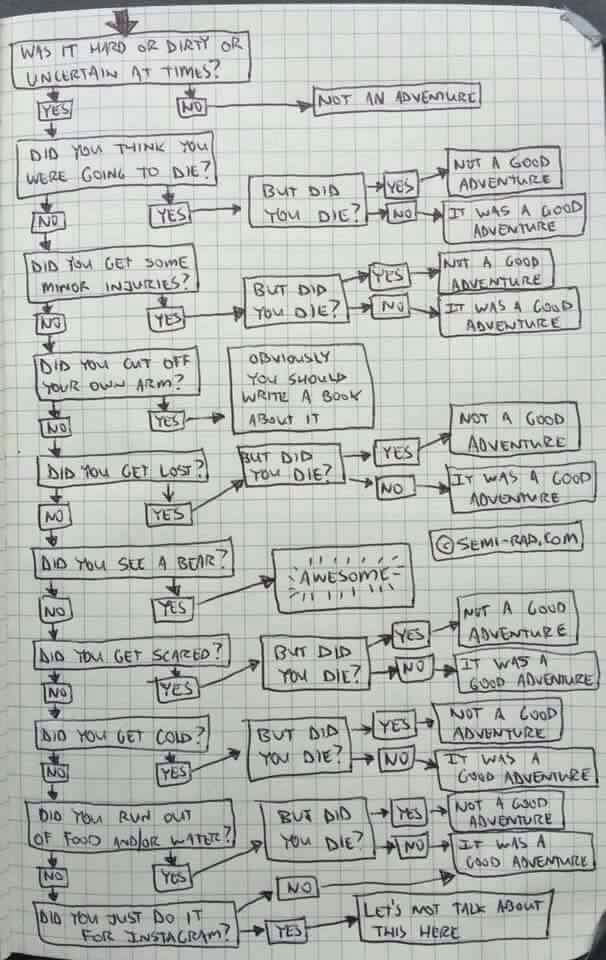 WAS IT HARD OR DIRTY OR
UNCERTAIN AT TIMES?
YES
NO
NOT AN ADVENTURE
DID YOU THINK YOU
WERE GOING TO DIE?
NO
YES
BUT DID
YOU DIE?
YES
NOT A GOOD
ADVENTURE
NO
IT WAS A GOOD
ADVENTURE
DID YOU GET SOME
MINOR INJURIES?
NO
YES
BUT DID
YOU DIE?
YES
NOT A GOOD
ADVENTURE
NO
IT WAS A GOOD
ADVENTURE
DID YOU CUT OFF
YOUR OWN ARM?
NO
YES
OBVIOUSLY
YOU SHOULD
WRITE A BOOK
ABOUT IT
DID YOU GET LOST?
NO
YES
BUT DID
YOU DIE?
YES
NOT A GOOD
ADVENTURE
NO
IT WAS A GOOD
ADVENTURE
© SEMI-RAD.COM
DID YOU SEE A BEAR?
NO
YES
AWESOME
DID YOU GET SCARED?
NO
YES
BUT DID
YOU DIE?
YES
NOT A GOOD
ADVENTURE
NO
IT WAS A
GOOD ADVENTURE
DID YOU GET COLD?
NO
YES
BUT DID
YOU DIE?
YES
NOT A GOOD
ADVENTURE
NO
IT WAS A
GOOD ADVENTURE
DID YOU RUN OUT
OF FOOD AND/OR WATER?
NO
YES
BUT DID
YOU DIE?
YES
NOT A GOOD
ADVENTURE
NO
IT WAS A
GOOD ADVENTURE
DID YOU JUST DO IT
FOR INSTAGRAM?
NO
YES
LET'S NOT TALK ABOUT
THIS HERE